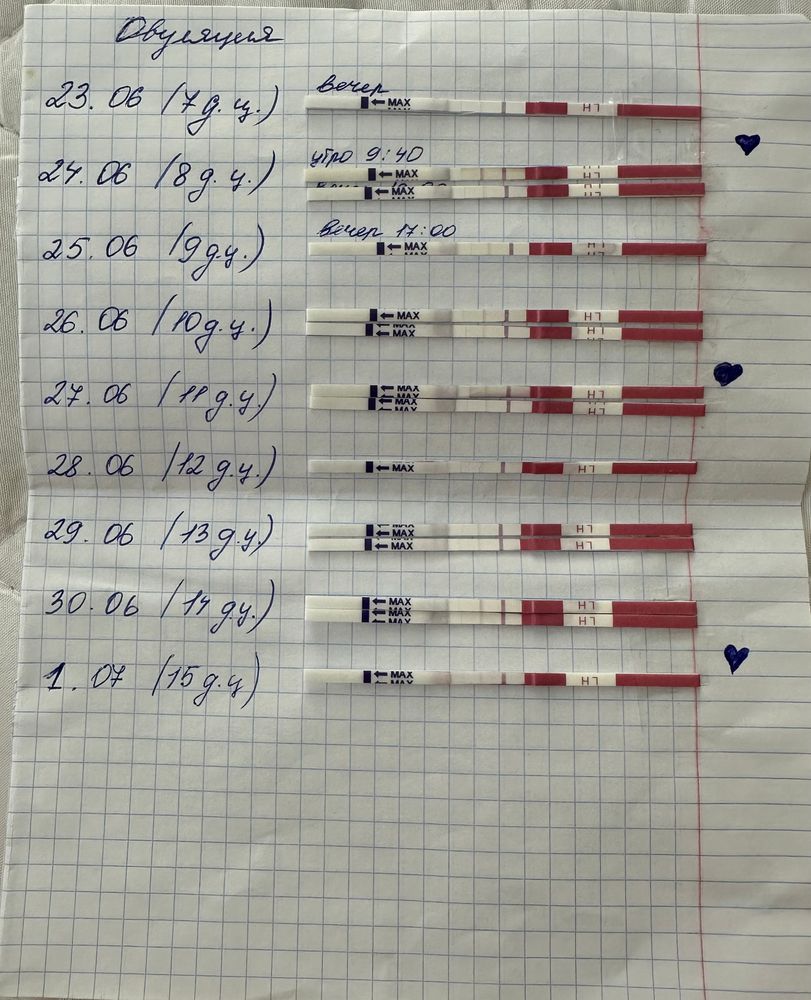 Овуляция
23.06 (7 д.ц.) вечер
← MAX LH
24.06 (8 д.ц.) утро 9:40
← MAX LH
← MAX LH
25.06 (9 д.ц.) вечер 17:00
← MAX LH
26.06 (10 д.ц.)
← MAX LH
← MAX LH
27.06 (11 д.ц.)
← MAX LH
← MAX LH
28.06 (12 д.ц.)
← MAX LH
29.06 (13 д.ц.)
← MAX LH
← MAX LH
30.06 (14 д.ц.)
← MAX LH
← MAX LH
1.07 (15 д.ц)
← MAX LH